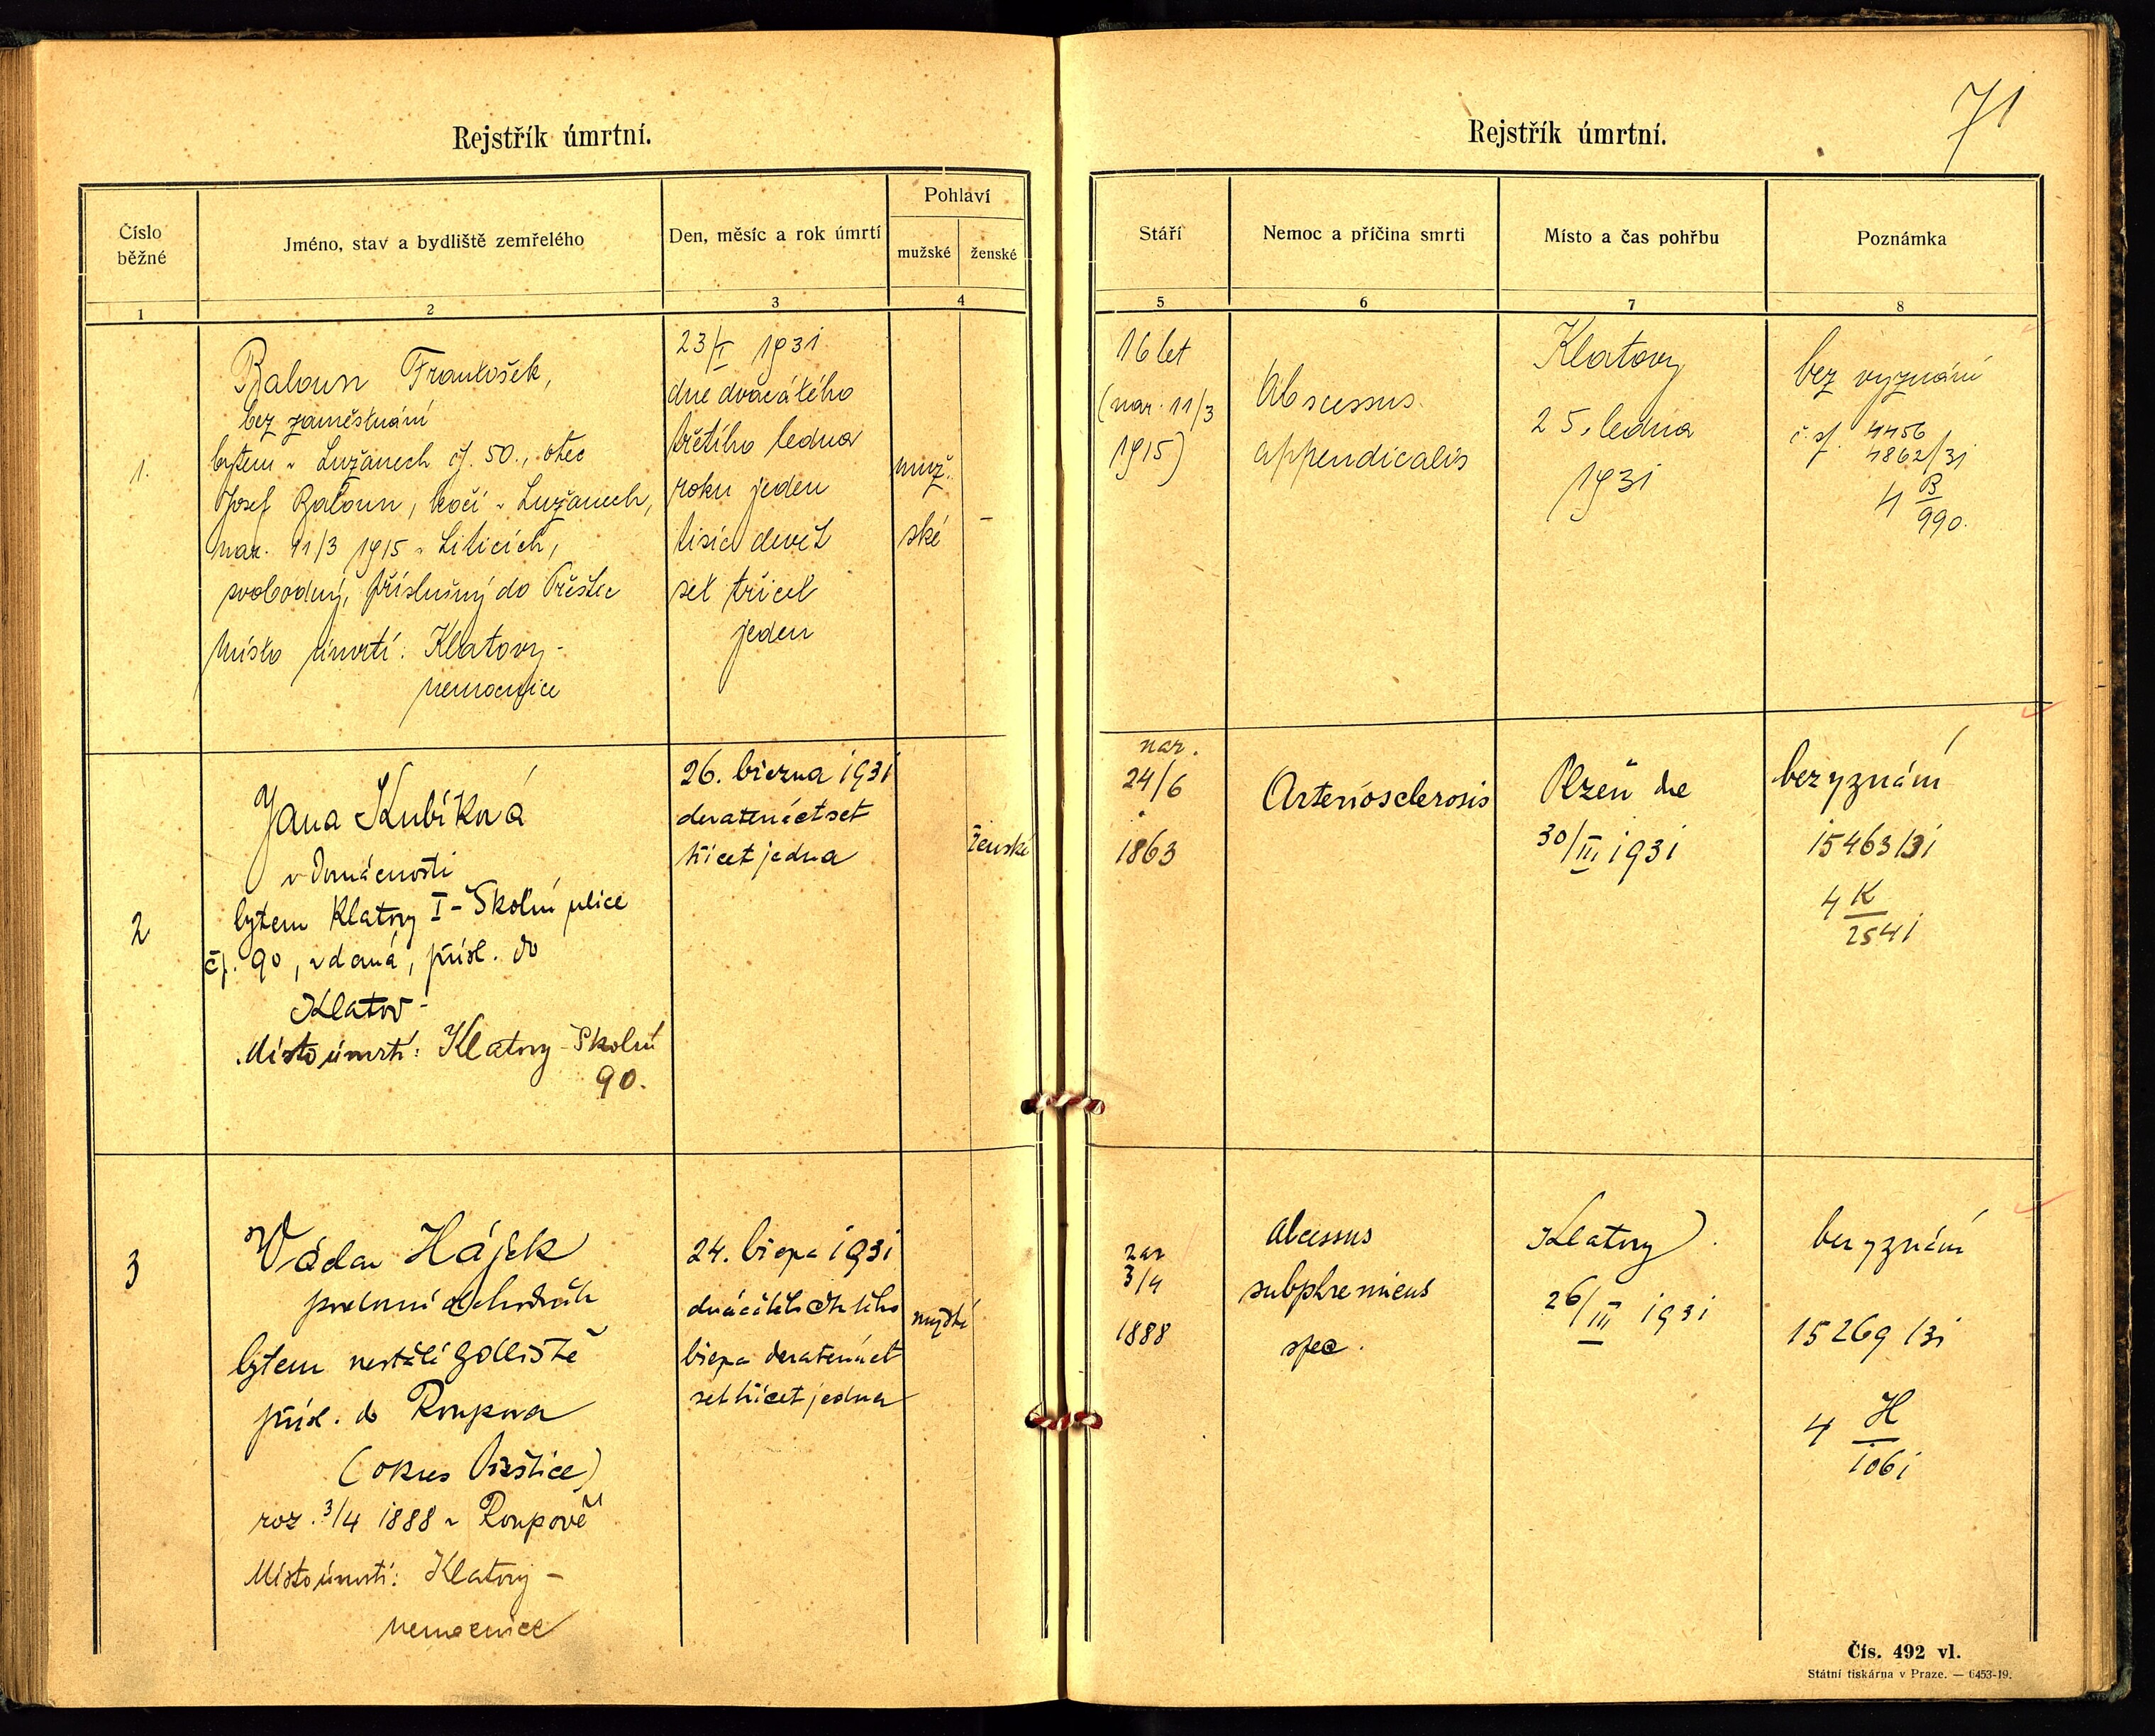 71
Rejstřík úmrtní.
Číslo běžné
Jméno, stav a bydliště zemřelého
Den, měsíc a rok úmrtí
Pohlaví
mužské
ženské
1
2
3
4
1.
Baloun František,
bez zaměstnání
bytem v Lužanech čp. 50., otec
Josef Baloun, kočí v Lužanech,
nar. 11/3 1915 v Liticích,
svobodný, příslušný do Přeštic
Místo úmrtí: Klatovy-
nemocnice
23/I 1931
dne dvacátého
třetího ledna
roku jeden
tisíc devět
set třicet
jeden
muž-
ské
-
2
Jana Kubíková
v domácnosti
bytem Klatovy I - Školní ulice
čp. 90, vdaná, přísl. do
Klatov -
Místo úmrtí: Klatovy - Školní
90.
26. března 1931
devatenáctset
třicet jedna
ženské
3
Václav Hájek
podomní obchodník
bytem nestálé
přísl. do Roupova
(okres Přeštice)
roz. 3/4 1888 v Roupově
Místo úmrtí: Klatovy -
nemocnice
24. března 1931
dvacátého čtvrtého
března devatenáct
set třicet jedna
mužské
Rejstřík úmrtní.
Stáří
Nemoc a příčina smrti
Místo a čas pohřbu
Poznámka
5
6
7
8
16 let
(nar. 11/3
1915)
Abscessus
appendicalis
Klatovy
25. ledna
1931
bez vyznání
4456
4862/31
4 B
990.
nar.
24/6
1863
Arteriosclerosis
Plzeň dne
30/III 1931
bez vyznání
15463/31
4 K
2541
nar
3/4
1888
abcessus
subphrenicus
Klatovy
26/III 1931
bez vyznání
15269/31
4 H
1061
Čís. 492 vl.
Státní tiskárna v Praze. — 6453-19.